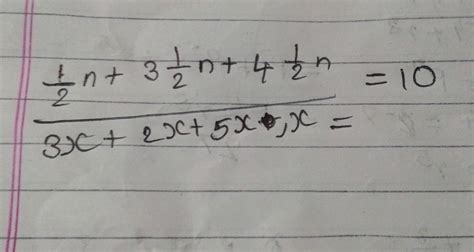 1/2 n + 3 1/2 n + 4 1/2 n = 10
3x + 2x + 5x , x =